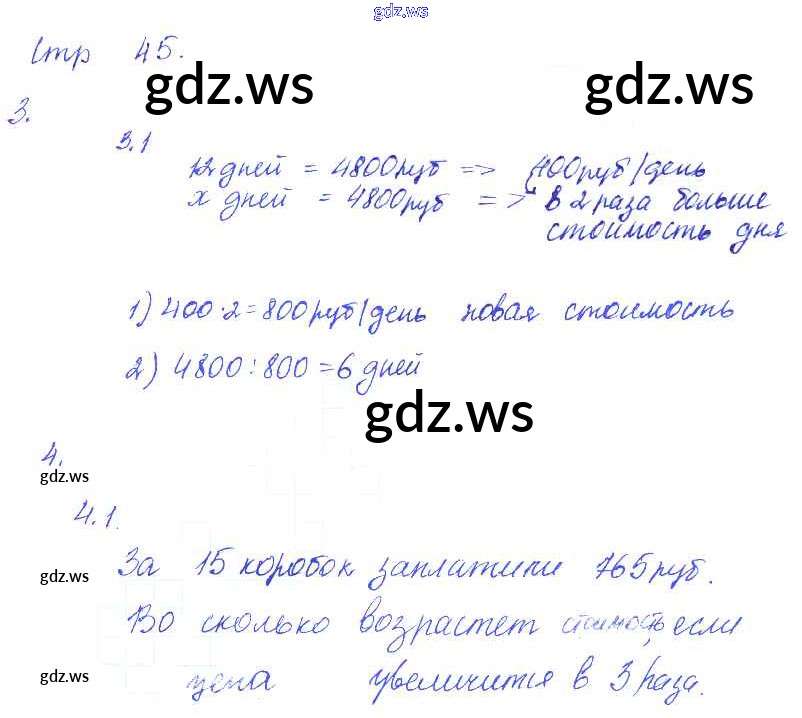 gdz.ws
Стр 45.
gdz.ws gdz.ws
3.
3.1
12 дней = 4800 руб => 400 руб/день
х дней = 4800 руб => в 2 раза больше
стоимость дня
1) 400·2=800 руб/день новая стоимость
2) 4800:800=6 дней
gdz.ws
4.
gdz.ws
4.1.
За 15 коробок заплатили 765 руб.
gdz.ws
Во сколько возрастет стоимость, если
цена увеличится в 3 раза.
gdz.ws